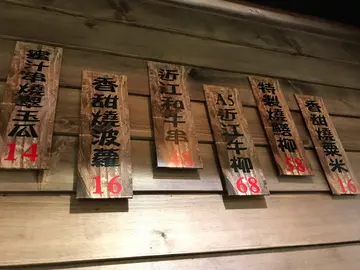 蜜汁串燒翠玉瓜
14
香甜燒波蘿
16
近江和牛串
48
A5近江牛柳
68
特製燒鰻柳
88
香甜燒粟米
16